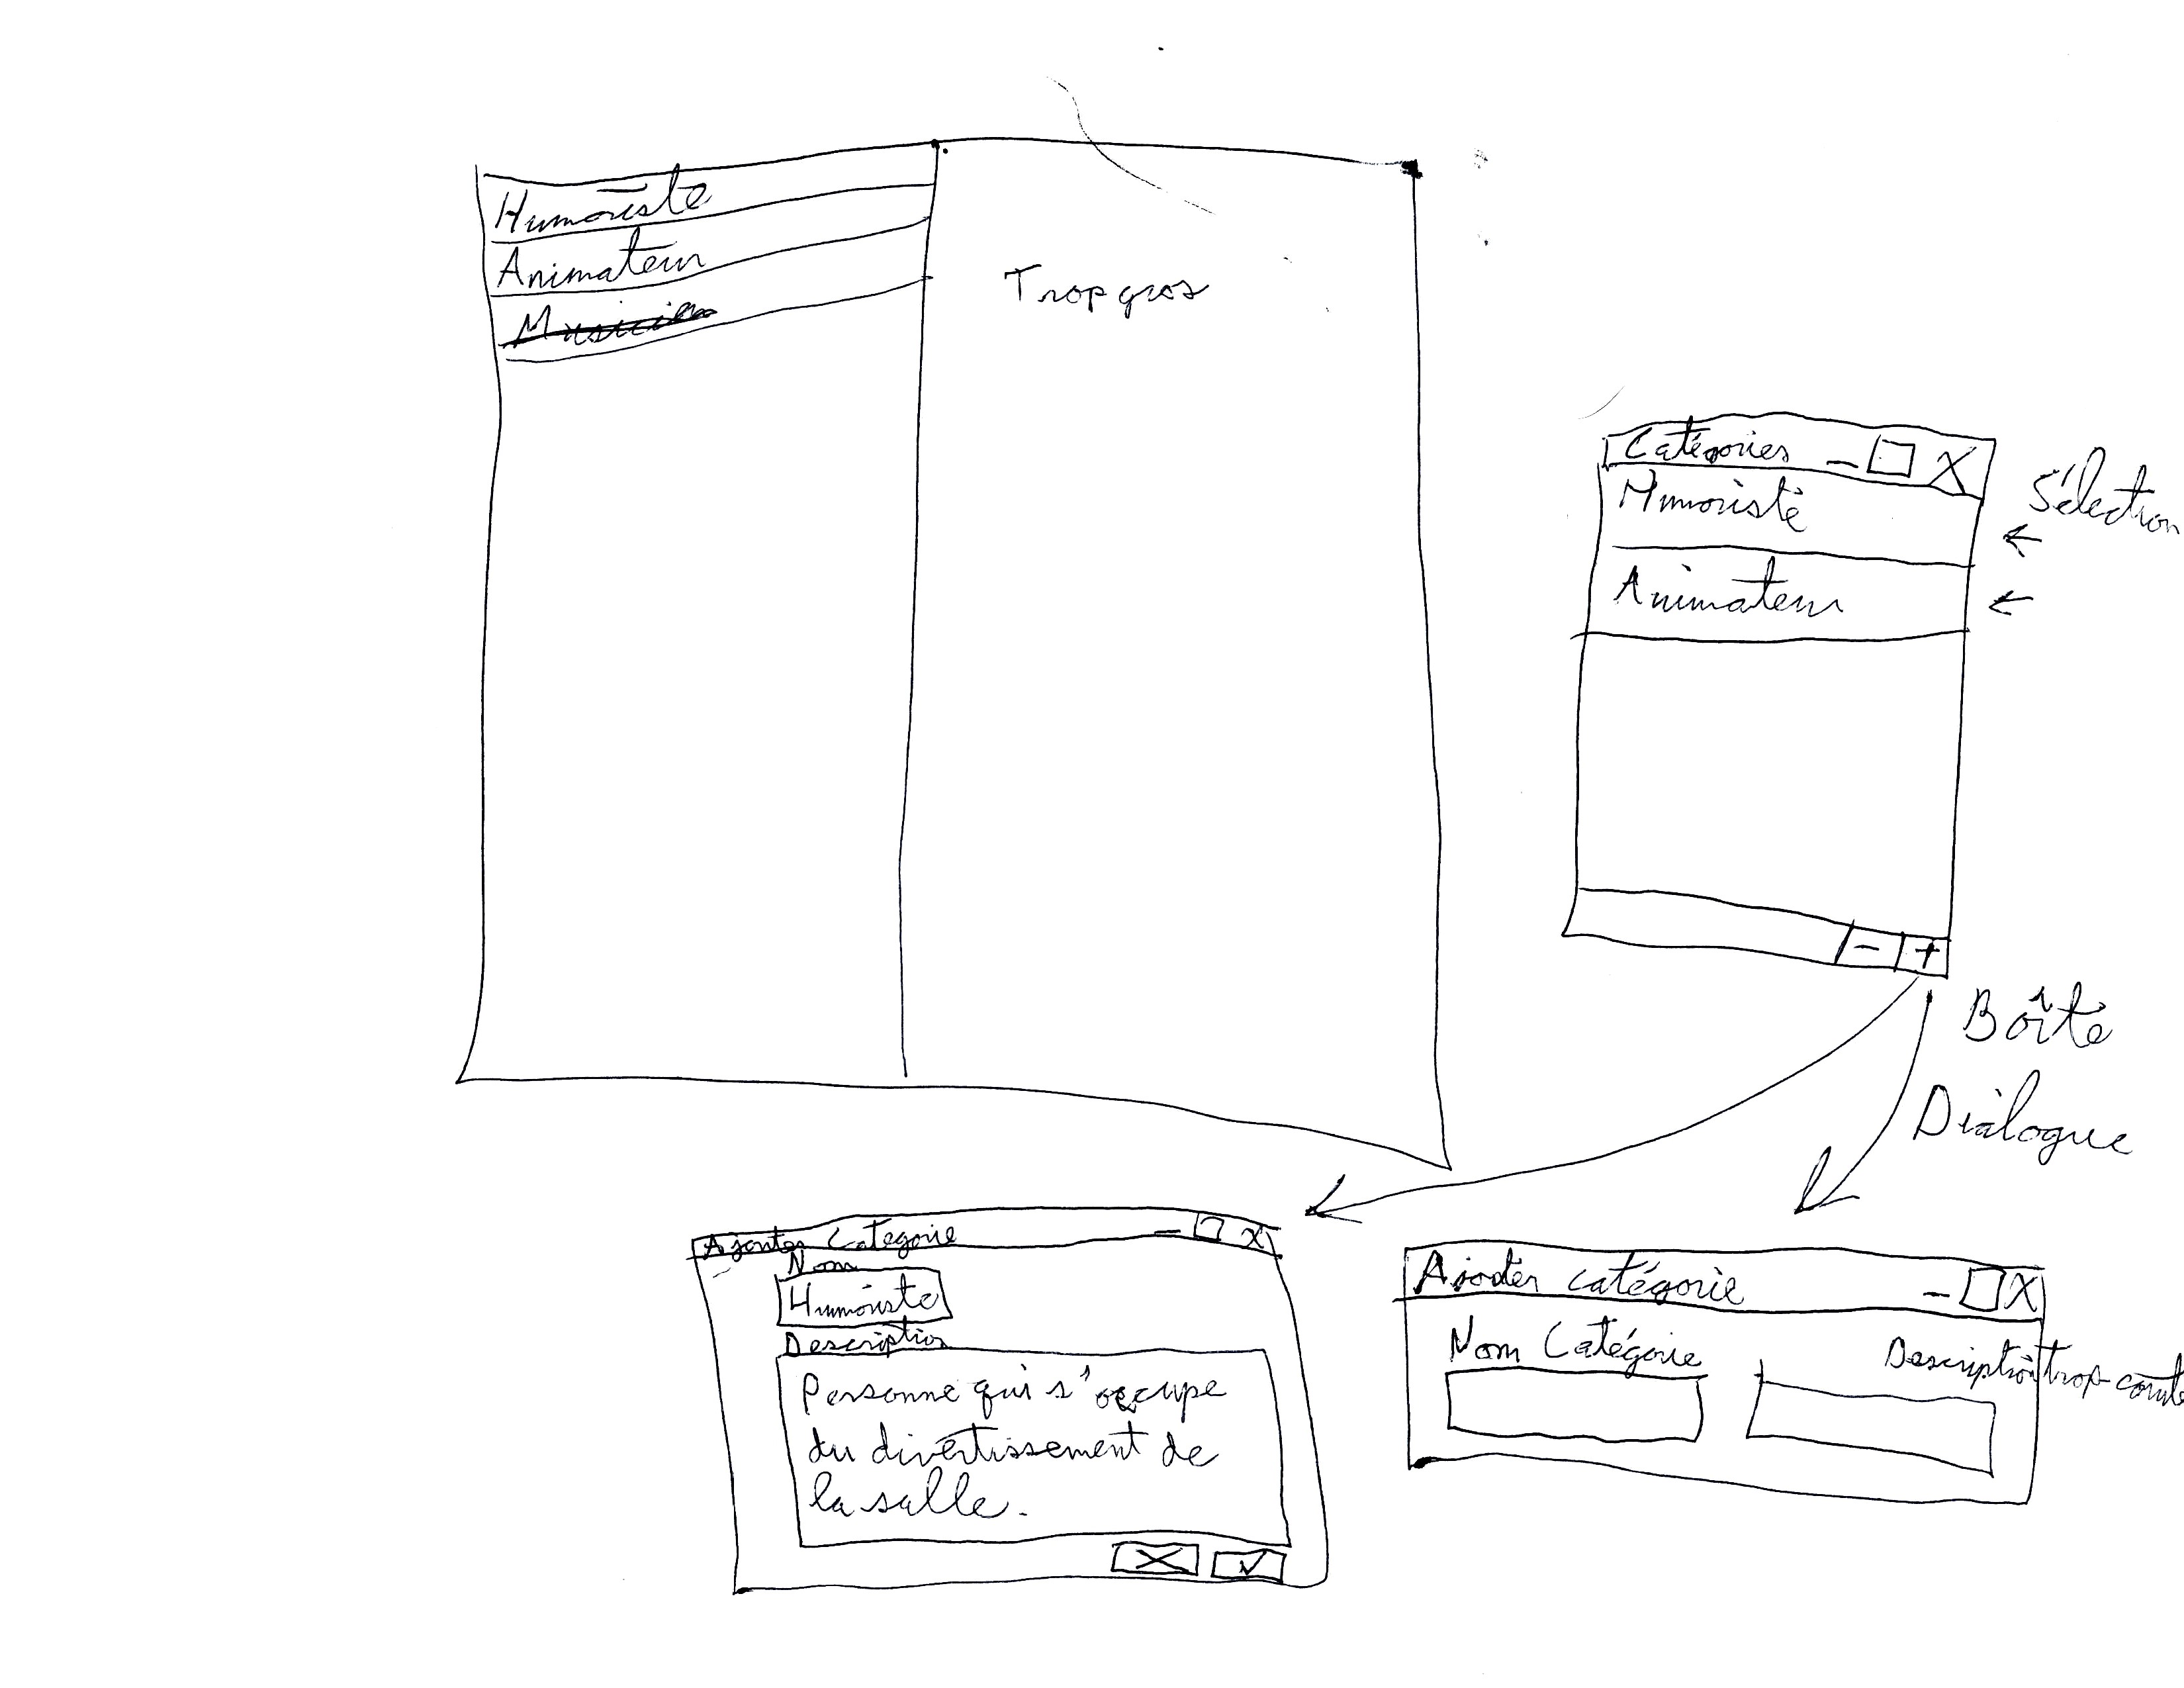 Humoriste
Animateur
Musicien
Trop gros
Catégories – □ X
Humoriste
Animateur
Sélection
- +
Boîte
Dialogue
Ajouter Catégorie – □ X
Nom
Humoriste
Description
Personne qui s'occupe
du divertissement de
la salle.
X ✓
Ajouter catégorie – □ X
Nom Catégorie
Description trop courte